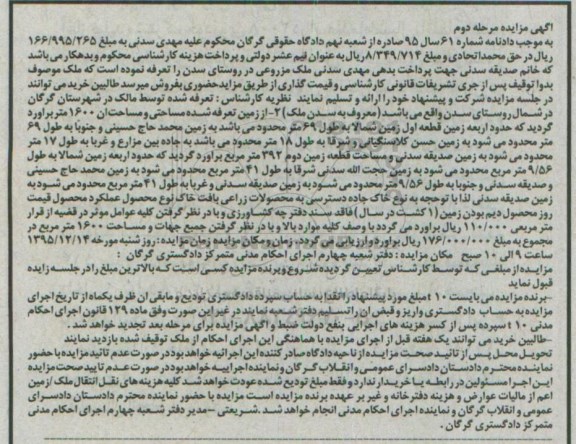 اگهی مزایده مرحله دوم
به موجب دادنامه شماره ۶۱ سال ۹۵ صادره از شعبه نهم دادگاه حقوقی گرگان محکوم علیه مهدی سدنی به مبلغ ۱۶۶/۹۹۵/۲۶۵
ریال در حق محمد اتحادی و مبلغ ۸/۳۴۹/۷۱۴ ریال به عنوان نیم عشر دولتی و پرداخت هزینه کارشناسی محکوم و بدهکار می باشد
که خانم صدیقه سدنی جهت پرداخت بدهی مهدی سدنی ملک مزروعی در روستای سدن را تعرفه نموده است که ملک موصوف
بدوا توقیف پس از جری تشریفات قانونی کارشناسی و قیمت گذاری از طریق مزایده حضوری بفروش میرسد طالبین خرید می توانند
در جلسه مزایده شرکت و پیشنهاد خود را ارائه و تسلیم نمایند نظریه کارشناس : تعرفه شده توسط مالک در شهرستان گرگان
در شمال روستای سدن واقع می باشد ( معروف به سدن ملک ) ۲- از زمین تعرفه شده مساحی و مساحت ان ۱۶۰۰ متر براورد
گردید که حدود اربعه زمین قطعه اول زمین شمالا به طول ۶۹ متر محدود می باشد به زمین محمد حاج حسینی و جنوبا به طول ۶۹
متر محدود می شود به زمین حسن کلاسنگیانی و شرقا به طول ۱۸ متر محدود می باشد به جاده بین مزارع و غربا به طول ۱۷ متر
محدود می شود به زمین صدیقه سدنی و مساحت قطعه زمین دوم ۳۹۲ متر مربع براورد گردید که حدود اربعه زمین شمالا به طول
۹/۵۶ متر مربع محدود می شود به زمین حجت الله سدنی شرقا به طول ۴۱ متر مربع محدود می شود به زمین محمد حاج حسینی
و صدیقه سدنی و جنوبا به طول ۹/۵۶ متر محدود می شود به زمین صدیقه سدنی و غربا به طول ۴۱ متر مربع محدود می شود به
زمین صدیقه سدنی لذا با توجه به نوع خاک جاده دسترسی به محصولات زراعی بافت خاک نوع محصول عملکرد محصول قیمت
روز محصول دیم بودن زمین ( ۱ کشت در سال ) فاقد سند دفترچه کشاورزی و با در نظر گرفتن کلیه عوامل موثر در قضیه از قرار
متر مربعی ۱۱۰/۰۰۰ ریال براورد می گردد با وصف کلیه موارد بالا و با در نظر گرفتن جمیع جهات و مساحت ۱۶۰۰ متر مربع در
مجموع به مبلغ ۱۷۶/۰۰۰/۰۰۰ ریال براورد و ارزیابی می گردد. زمان و مکان مزایده زمان مزایده : روز شنبه مورخه ۱۳۹۵/۱۲/۱۴
ساعت ۹ الی ۱۰ صبح مکان مزایده : دفتر شعبه چهارم اجرای احکام مدنی متمرکز دادگستری گرگان :
مزایده از مبلغی که توسط کارشناس تعیین گردیده شروع و برنده مزایده کسی است که بالاترین مبلغ را در جلسه مزایده
قبول نماید
-برنده مزایده می بایست ۱۰٪ مبلغ مورد پیشنهاد را نقدا به حساب سپرده دادگستری تودیع و مابقی ان ظرف یکماه از تاریخ اجرای
مزایده به حساب دادگستری واریز و قبض ان را تسلیم دفتر شعبه نمایند در غیر این صورت وفق ماده ۱۲۹ قانون اجرای احکام
مدنی ۱۰٪ سپرده پس از کسر هزینه های اجرایی بنفع دولت ضبط و اگهی مزایده برای مرحله بعد تجدید خواهد شد .
-طالبین خرید می توانند یک هفته قبل از اجرای مزایده با هماهنگی این اجرای احکام از ملک توقیف شده بازدید نمایند
تحویل محل پس از تائید صحت مزایده از ناحیه دادگاه صادر کننده این اجرائیه خواهد بود در صورت عدم تائید مزایده با حضور
نماینده محترم دادستان دادسرای عمومی و انقلاب گرگان و نماینده اجراییه خواهد بود در صورت عدم تایید صحت مزایده
این اجرا مسئولین در رابطه با خریدار ندارد و فقط مبلغ تودیع شده عودت خواهد شد کلیه هزینه های نقل انتقال ملک / زمین
اعم از مالیات عوارض و هزینه دفترخانه و غیر بر عهده برنده مزایده است مزایده با حضور نماینده محترم دادستان دادسرای
عمومی و انقلاب گرگان و نماینده اجرای احکام مدنی انجام خواهد شد . شریعتی - مدیر دفتر شعبه چهارم اجرای احکام مدنی
متمرکز دادگستری گرگان .